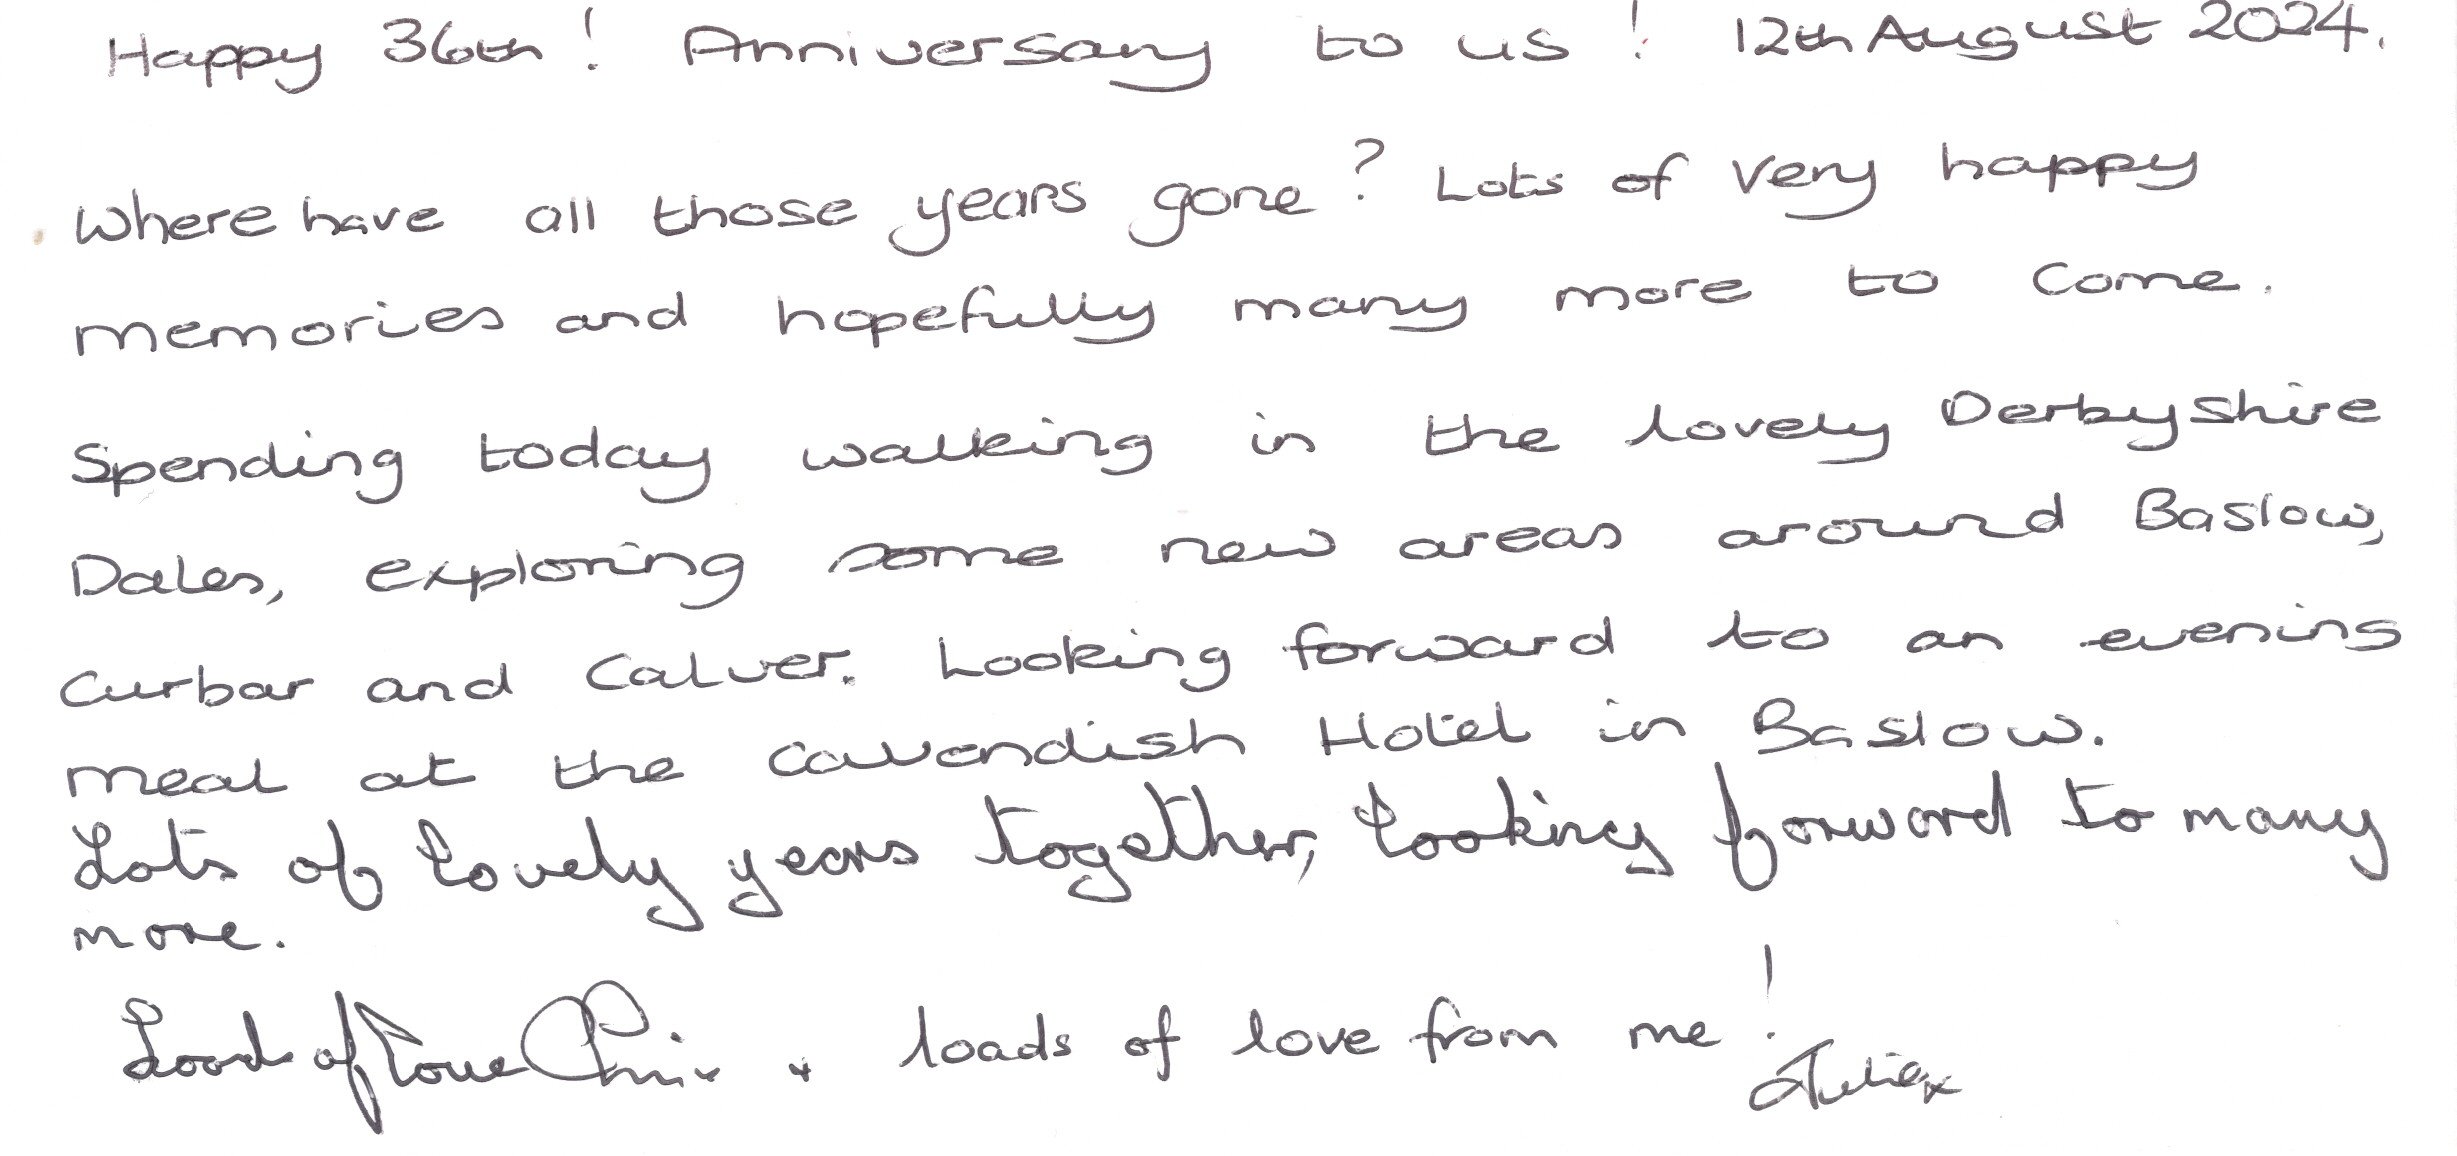 Happy 36th! Anniversary to us! 12th August 2024.
Where have all those years gone? Lots of very happy
memories and hopefully many more to come.
Spending today walking in the lovely Derbyshire
Dales, exploring some new areas around Baslow,
Curbar and Calver. Looking forward to an evening
meal at the Cavendish Hotel in Baslow.
Lots of lovely years together, looking forward to many
more.
Loads of love Chris x + loads of love from me!
Julie x